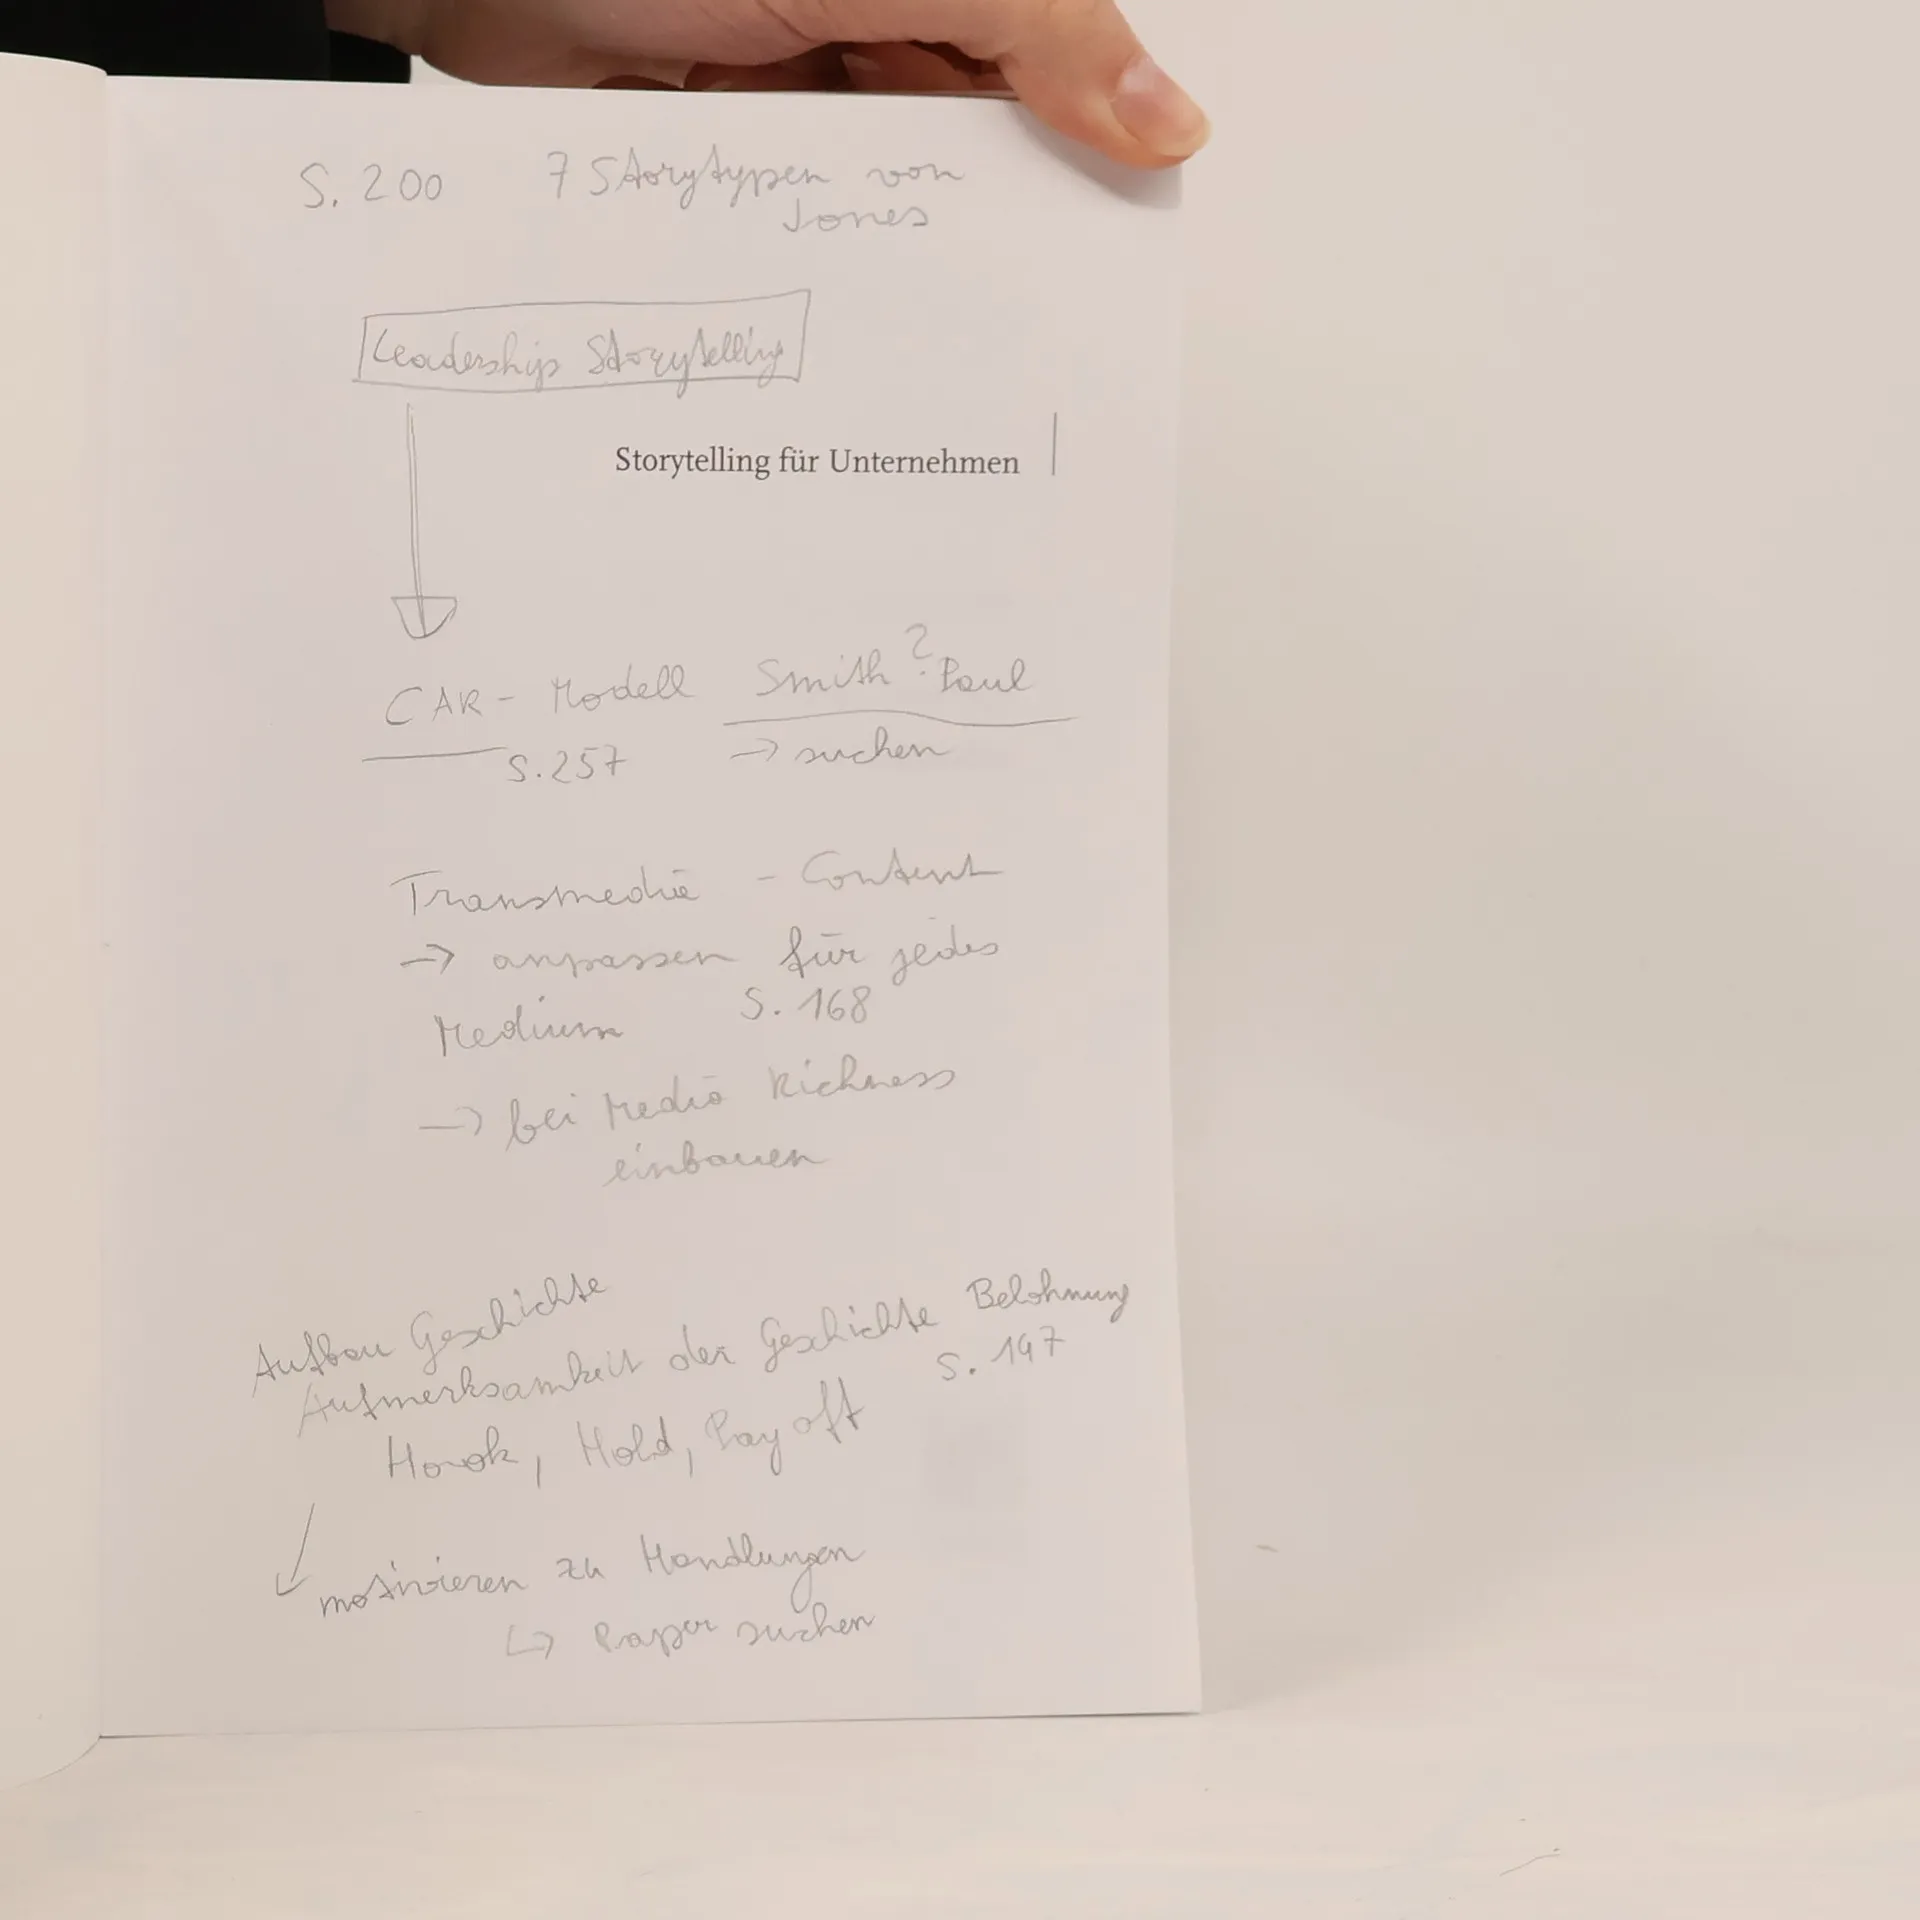 S. 200 7 Storytypen von
Jones
Leadership Storytelling
Storytelling für Unternehmen
CAR - Modell Smith ? Paul
S. 257 → suchen
Transmedia - Content
→ anpassen für jedes
Medium S. 168
→ bei Media Richness
einbauen
Aufbau Geschichte
Aufmerksamkeit der Geschichte Belohnung
Hook, Hold, Pay off S. 197
motivieren zu Handlungen
↳ Paper suchen